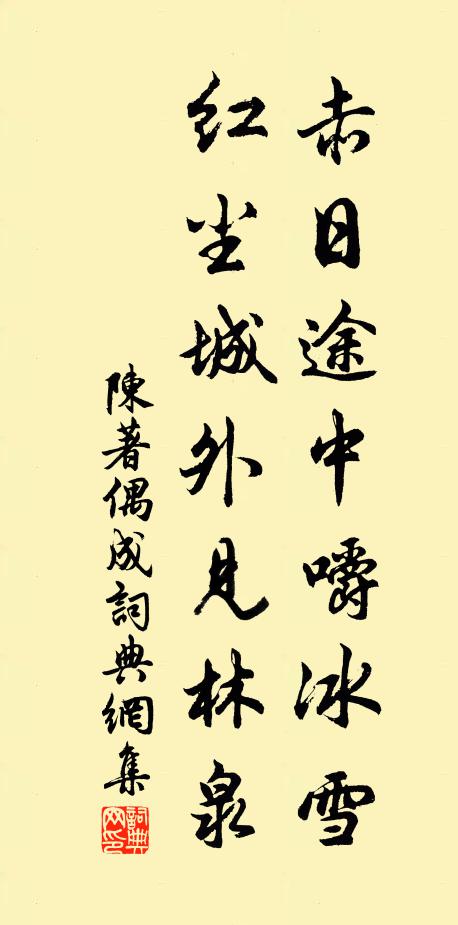 赤日途中嚼冰雪
红尘城外见林泉
陳著偶成詞典網集
詞典网印